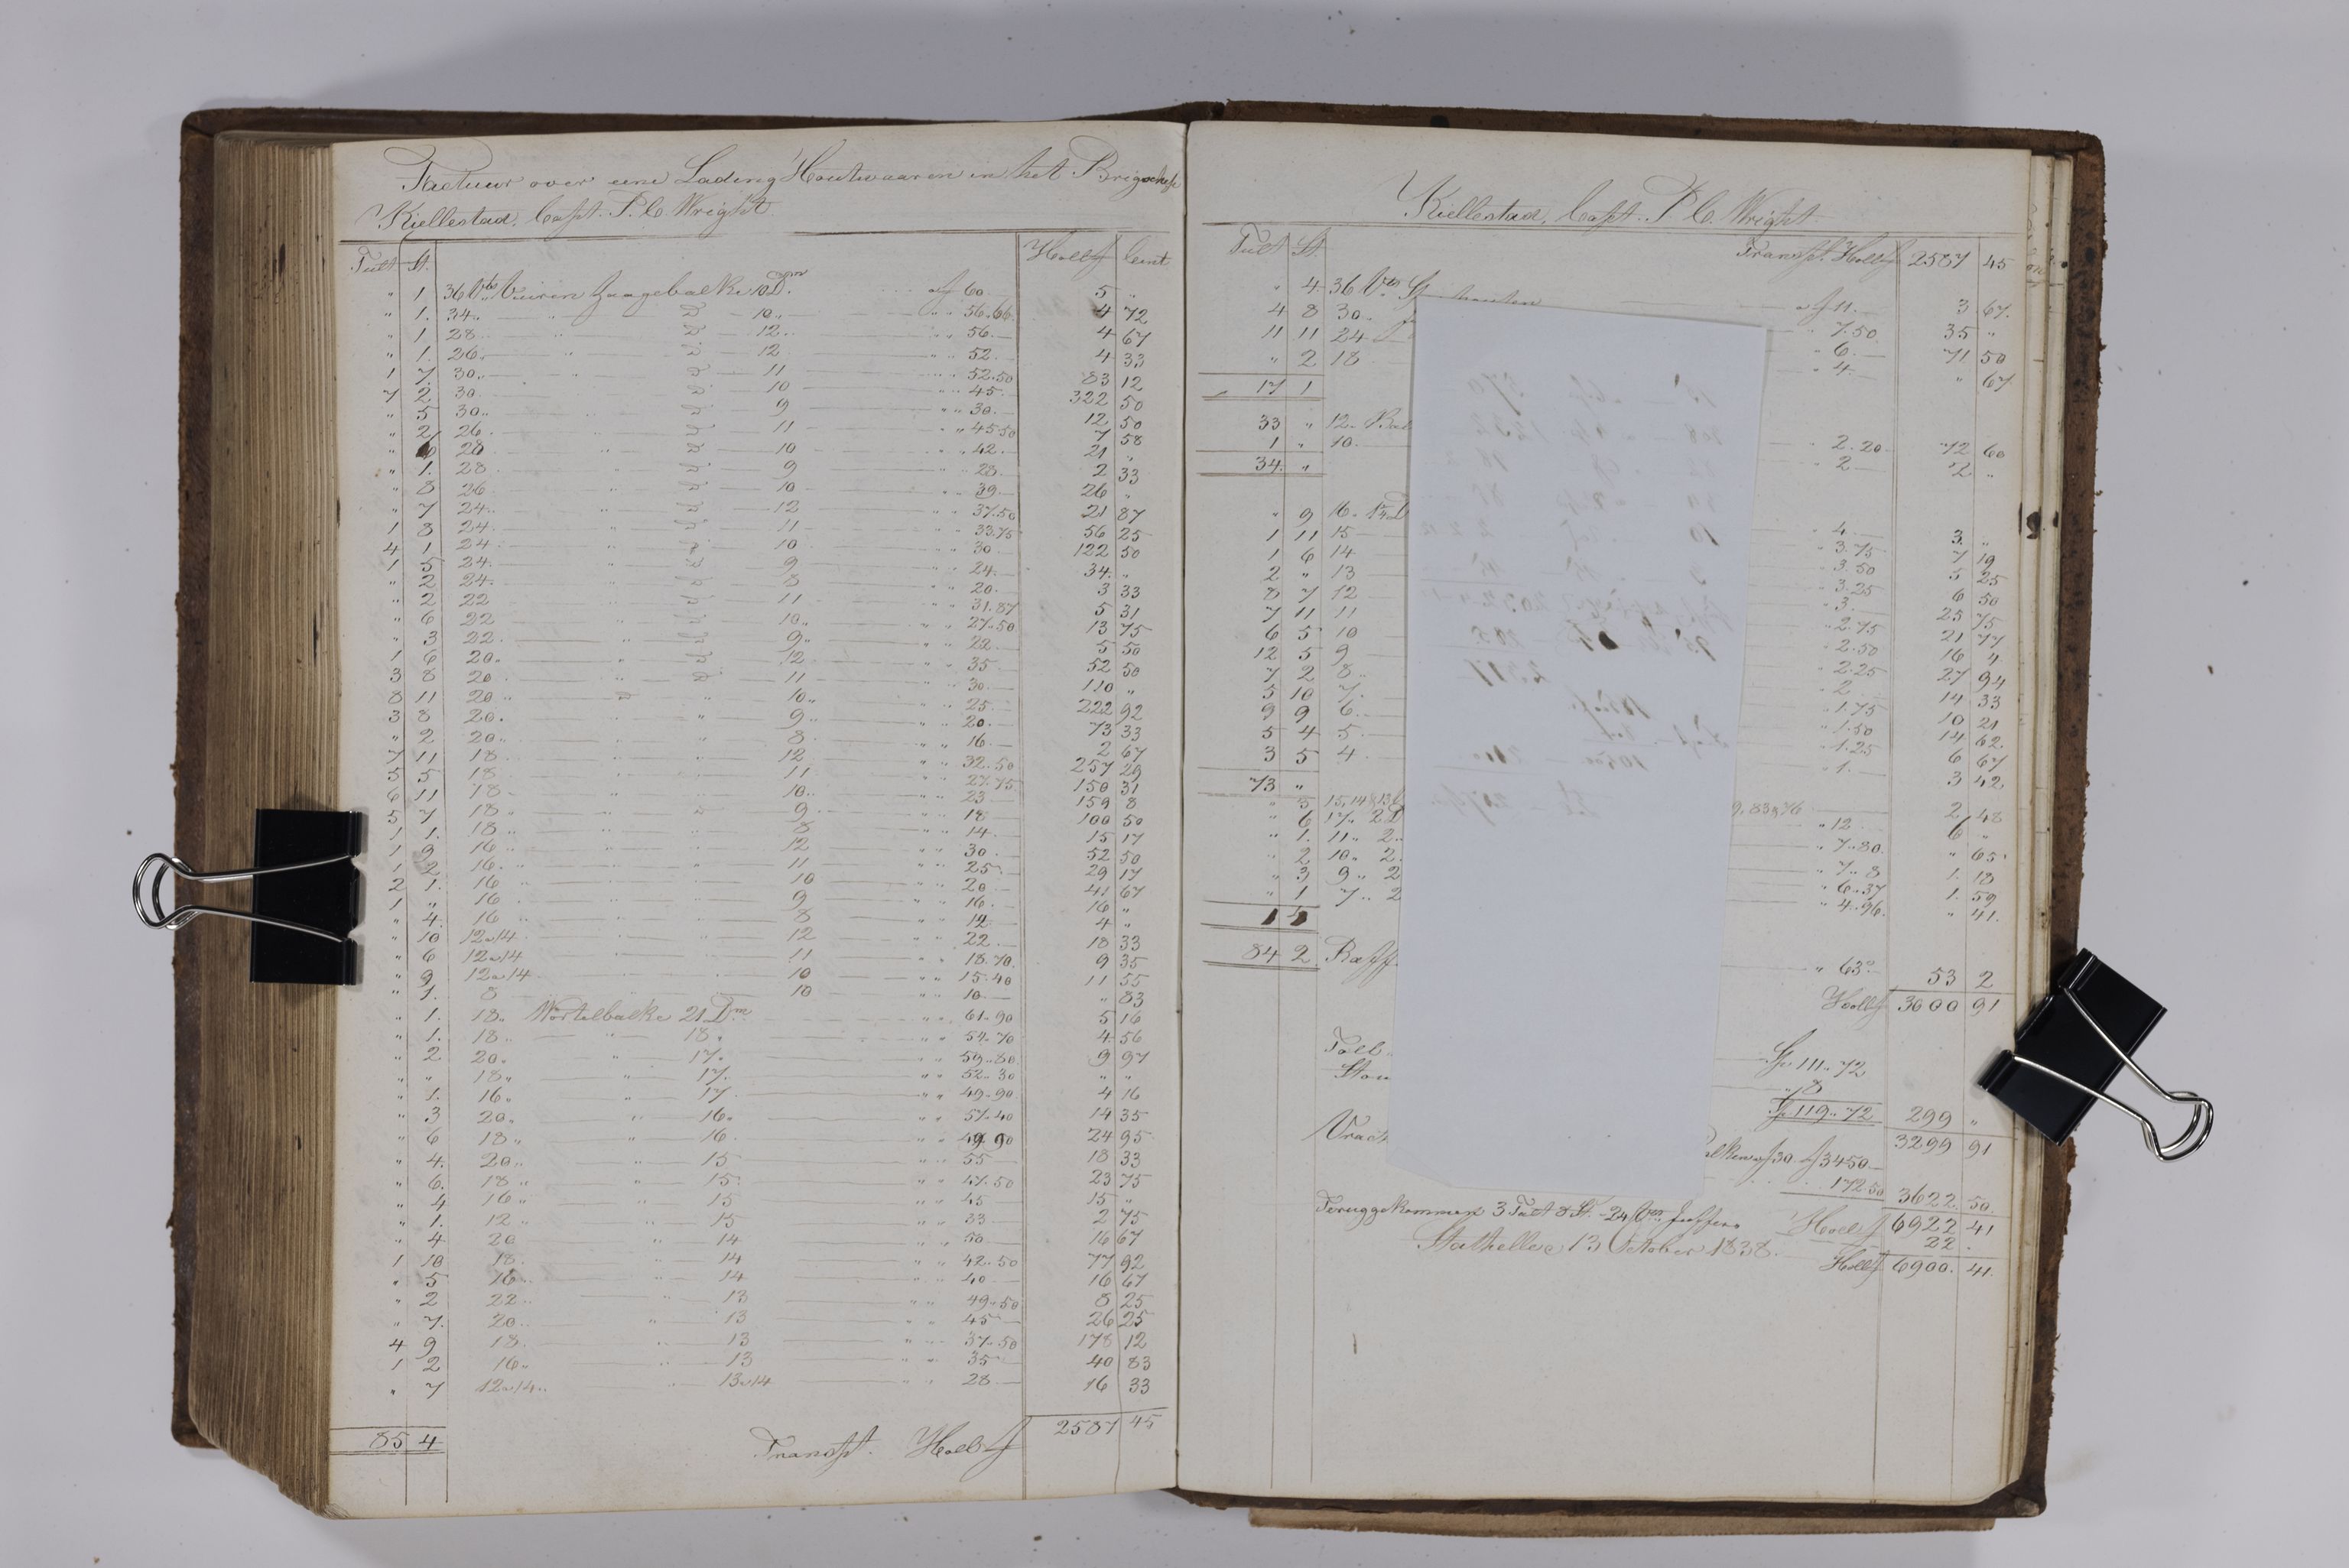 Factuur over eene Lading Houtwaaren in het Brigschip
Kiellestad, Capt. P. C. Wright.
Tült St. Hollf Cent
" 1 36 Vts Vuiren Zaagebalke 10 Dm af 60 5 "
" 1. 34 " 10 " 56.66 4 72
" 1 28 " 12 " 56 4 67
" 1. 26 " 12 " 52 4 33
1 7. 30 11 " 52.50 83 12
7 2 30 10 " 45 322 50
" 5 30 9 " 30 12 50
" 2 26 11 " 45.50 7 58
" 6 28 " 10 " 42 21 "
" 1. 28 9 " 28 2 33
" 8 26 10 " 39 26 "
" 7 24 12 " 37.50 21 87
1 8 24 11 " 33.75 56 25
4 1 24 10 " 30 122 50
1 5 24 9 " 24 34 "
" 2 24 8 " 20 3 33
" 2 22 11 " 31.87 5 31
" 6 22 10 " 27.50 13 75
" 3 22 9 " 22 5 50
1 6 20 12 " 35 52 50
3 8 20 11 " 30 110 "
8 11 20 10 " 25 222 92
3 8 20 9 " 20 73 33
" 2 20 8 " 16 2 67
7 11 18 12 " 32.50 257 29
5 5 18 11 " 27.75 150 31
6 11 18 10 " 23 159 8
5 7 18 9 " 18 100 50
1 1. 18 8 " 14 15 17
1 9 16 12 " 30 52 50
1 2 16 11 " 25 29 17
2 1. 16 10 " 20 41 67
1 " 16 9 " 16 16 "
" 4. 16 8 " 12 4 "
" 10 12 a 14 12 " 22 18 33
" 6 12 a 14 11 " 18.70 9 35
" 9 12 a 14 10 " 15.40 11 55
" 1. 8 10 " 10 " 83
" 1. 18 Wortelbalke 21 Dm " 61.90 5 16
" 1. 18 " 18 " 54.70 4 56
" 2 20 " 17 " 59.80 9 97
" " 18 " 17 " 52.30 " "
" 1. 16 " 17 " 49.90 4 16
" 3 20 " 16 " 57.40 14 35
" 6 18 " 16 " 49.90 24 95
" 4. 20 " 15 " 55 18 33
" 6. 18 " 15 " 47.50 23 75
" 4 16 " 15 " 45 15 "
" 1. 12 " 15 " 33 2 75
" 4 20 " 14 " 50 16 67
1 10 18 " 14 " 42.50 77 92
" 5 16 " 14 " 40 16 67
" 2 22 " 13 " 49.50 8 25
" 7. 20 " 13 " 45 26 25
4 9 18 " 13 " 37.50 178 12
1 2 16 " 13 " 35 40 83
" 7 12 a 14 " 13 a 14 " 28 16 33
85 4 Transpt. Hollf 2587 45
Kiellestad, Capt. P. C. Wright.
Tült St. Transpt. Hollf 2587 45
" 4. 36 Vts af 11 3 67.
4 8 30 " 7.50 35 "
11 11 24 " 6 71 50
" 2 18 " 4 " 67
17 1
33 " 12 " 2.20 72 60
1 " 10 " 2 2 "
34 "
" 9 16 " 4 3 "
1 11 15 " 3.75 7 19
1 6 14 " 3.50 5 25
2 " 13 " 3.25 6 50
8 7 12 " 3 25 75
7 11 11 " 2.75 21 77
6 5 10 " 2.50 16 4
12 5 9 " 2.25 27 94
7 2 8 " 2 14 33
5 10 7 " 1.75 10 21
9 9 6 " 1.50 14 62
5 4 5 " 1.25 6 67
3 5 4 " 1 3 42
73 "
" 3 15, 14 & 13 9, 83 & 76 2 48
" 6 17 2 D " 12 6 "
" 1. 11 2 " 7.80 " 65
" 2 10 2 " 7.8 1. 18
" 3 9 2 " 6.37 1. 59
" 1 7 2 " 4.96 " 41.
84 2 " 63 53 2
Hollf 3000 91
Toll Sp 111.72
" 8
Sp 119.72 299 "
3299 91
Vrac alken af 30 f 3450
172.50 3622 50
Teruggekommen 3 Tült 8 St. 24 Vts Juffers Hollf 6922 41
Stathelle, 13 October 1838. 22 .
Hollf 6900. 41.